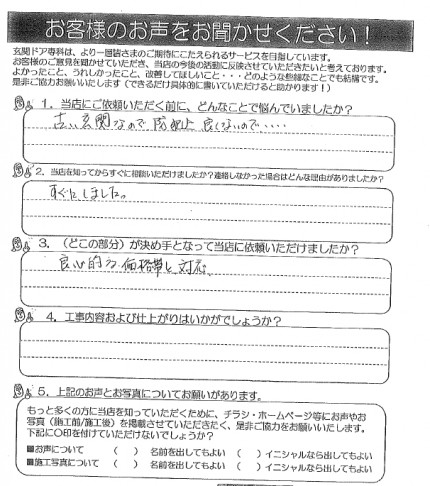 お客様のお声をお聞かせください！
玄関ドア専科は、より一層皆さまのご期待にこたえられるサービスを目指しています。
お客様のご意見を聞かせていただき、当店の今後の活動に反映させていただきたいと考えております。
よかったこと、うれしかったこと、改善してほしいこと・・・どのような些細なことでも結構です。
是非ご協力お願いいたします（できるだけ具体的に書いていただけると助かります！）
1．当店にご依頼いただく前に、どんなことで悩んでいましたか？
古い玄関なので 防犯上 良くないので・・・・・
2．当店を知ってからすぐに相談いただけましたか？連絡しなかった場合はどんな理由がありましたか？
すぐにしました。
3．（どこの部分）が決め手となって当店に依頼いただけましたか？
良心的な 価格帯と 対応
4．工事内容および仕上がりはいかがでしょうか？
5．上記のお声とお写真についてお願いがあります。
もっと多くの方に当店を知っていただくために、チラシ・ホームページ等にお声やお
写真（施工前/施工後）を掲載させていただきたく、是非ご協力をお願いいたします。
下記に〇印を付けていただけないでしょうか？
■お声について （ ）名前を出してもよい （ ）イニシャルなら出してもよい
■施工写真について （ ）名前を出してもよい （ ）イニシャルなら出してもよい